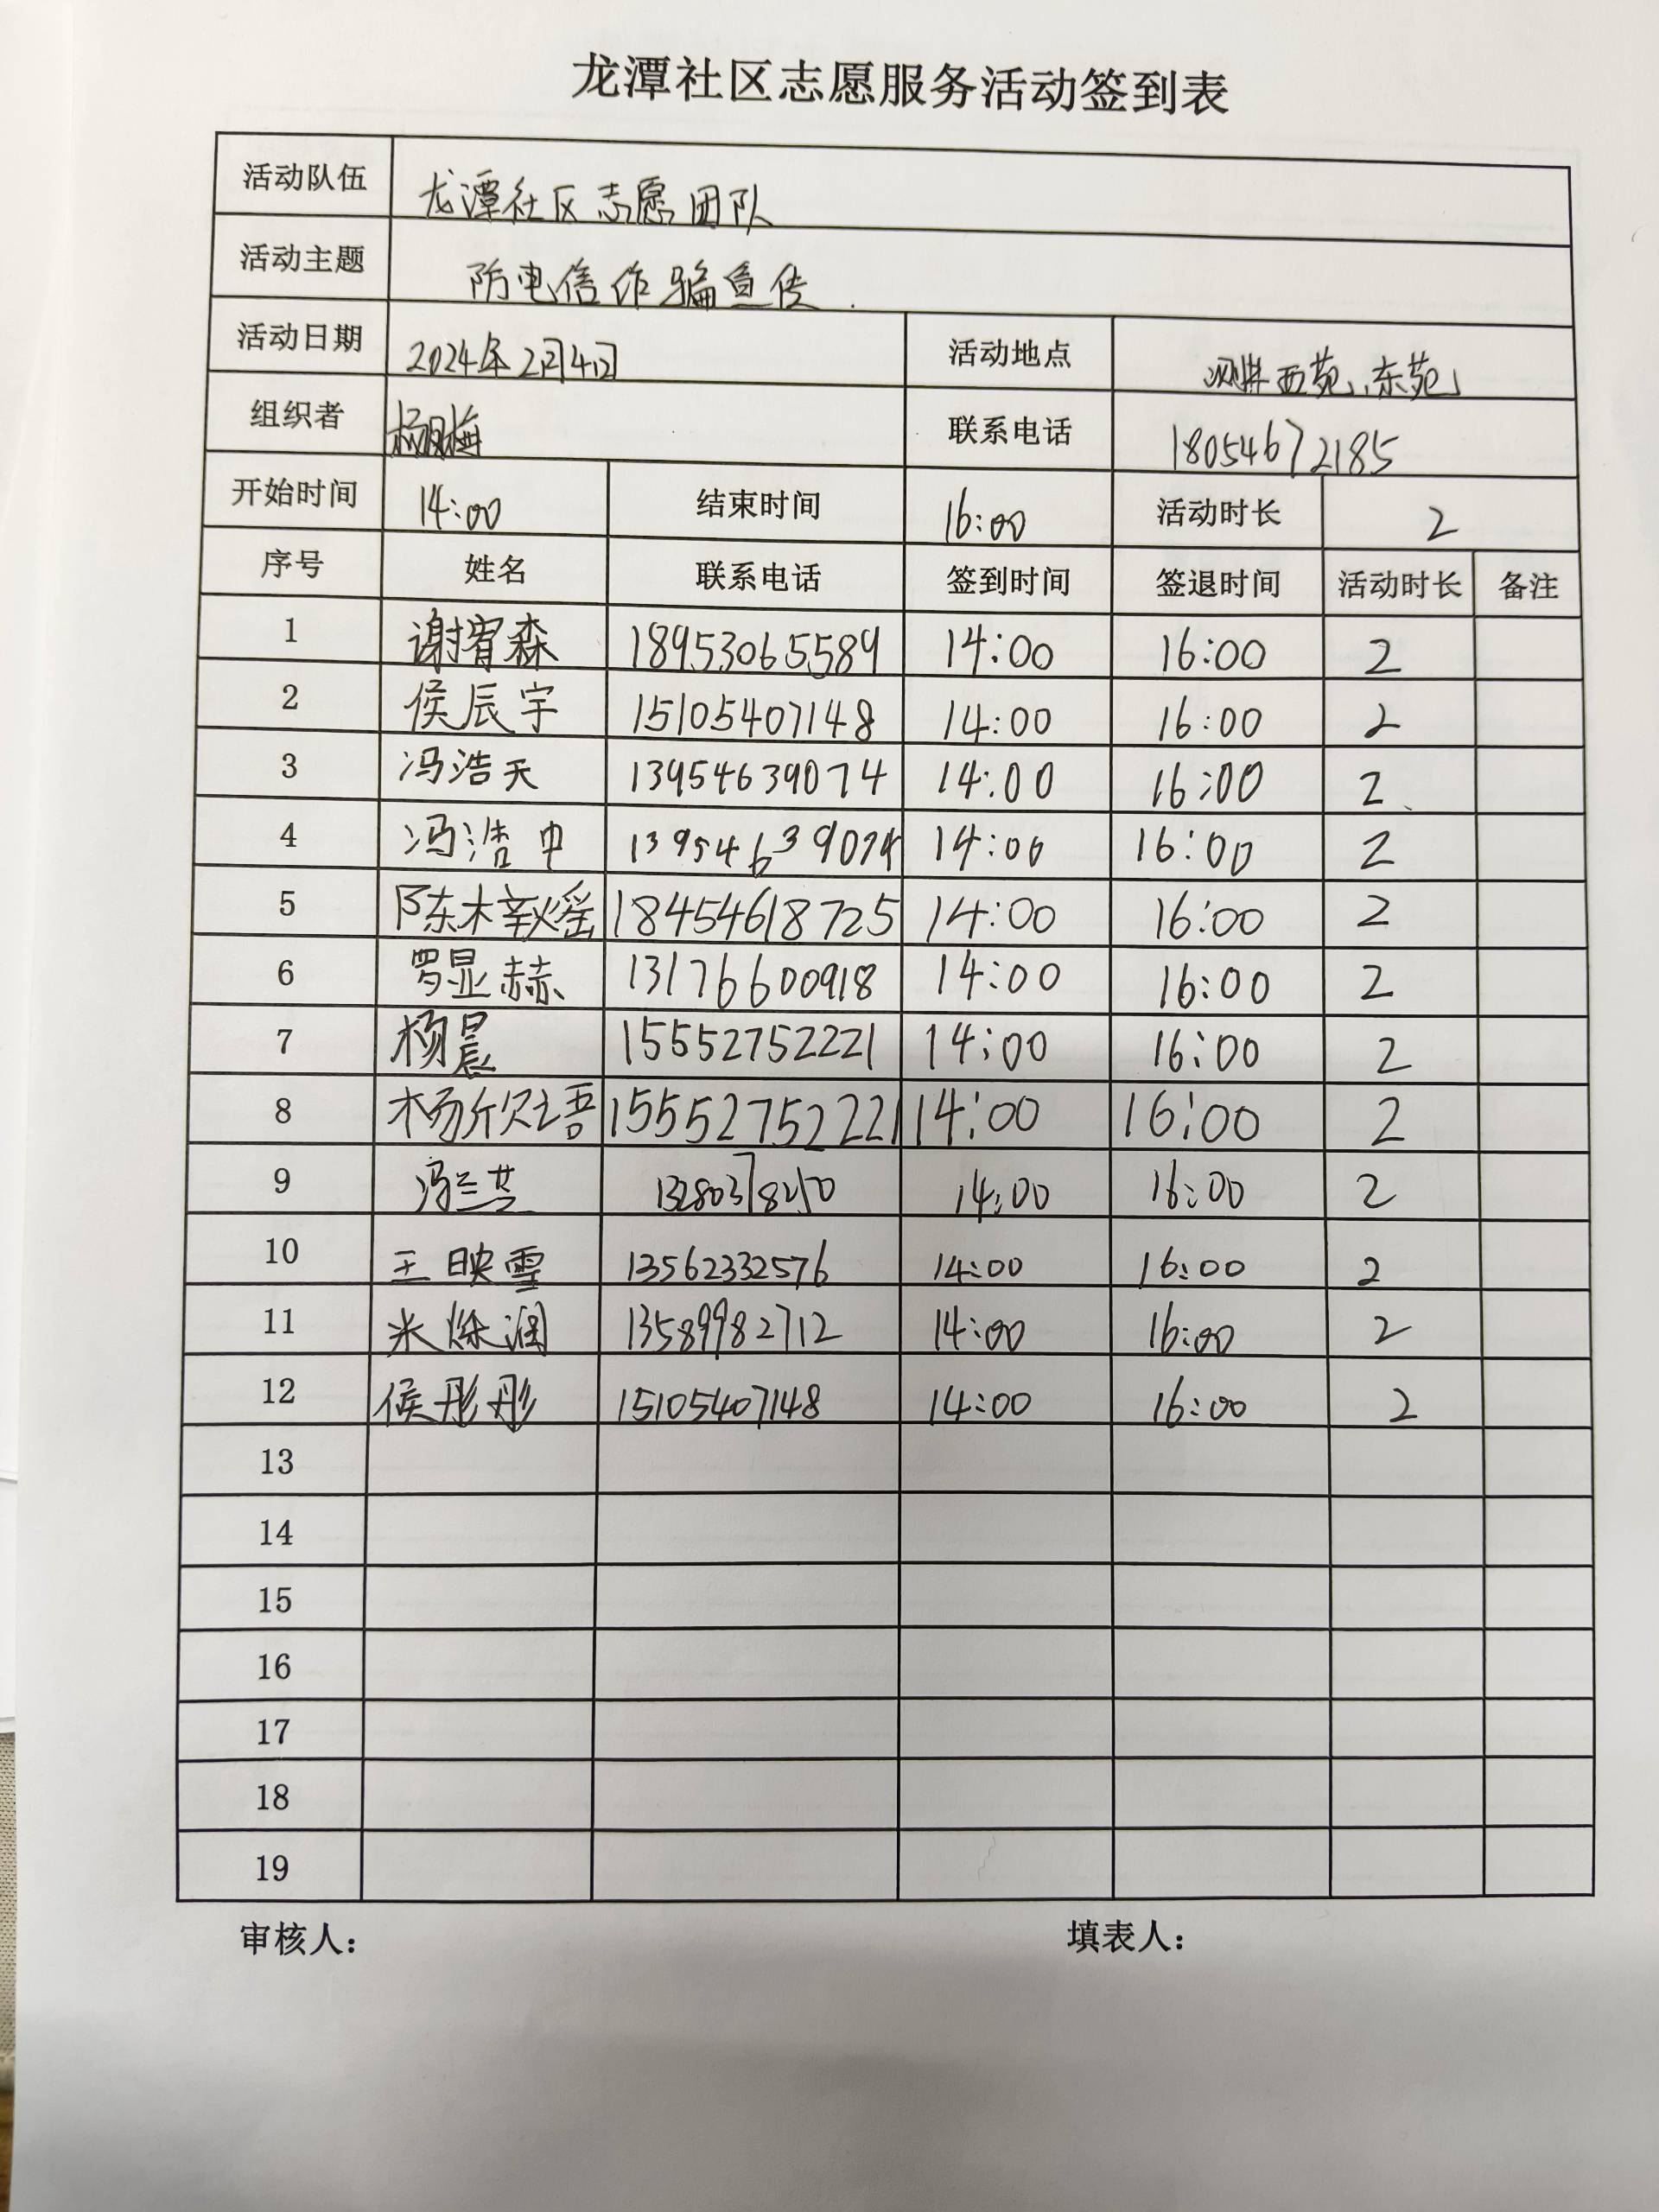 龙潭社区志愿服务活动签到表
活动队伍 龙潭社区志愿团队
活动主题 防电信诈骗宣传
活动日期 2024年2月4日 活动地点 西苑、东苑
组织者 杨凤梅 联系电话 18054672185
开始时间 14:00 结束时间 16:00 活动时长 2
序号 姓名 联系电话 签到时间 签退时间 活动时长 备注
1 谢宥森 18953065589 14:00 16:00 2
2 侯辰宇 15105407148 14:00 16:00 2
3 冯浩天 13954639074 14:00 16:00 2
4 冯浩中 13954639074 14:00 16:00 2
5 陈梓瑶 18454618725 14:00 16:00 2
6 罗显赫 13176600918 14:00 16:00 2
7 杨晨 15552752221 14:00 16:00 2
8 杨欣语 15552752221 14:00 16:00 2
9 冯兰芝 14:00 16:00 2
10 王映雪 13562332576 14:00 16:00 2
11 米烁润 13589982712 14:00 16:00 2
12 侯彤彤 15105407148 14:00 16:00 2
13
14
15
16
17
18
19
审核人： 填表人：